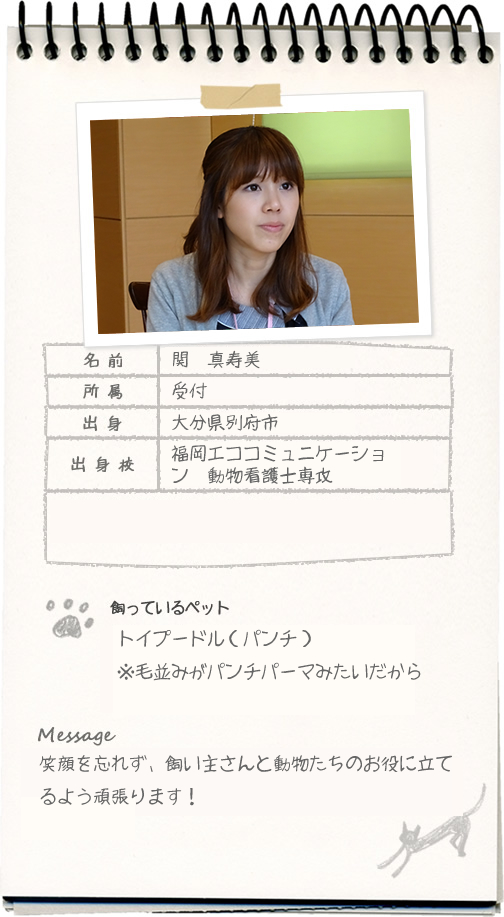 名前 関 真寿美
所属 受付
出身 大分県別府市
出身校 福岡エココミュニケーショ
ン 動物看護士専攻
飼っているペット
トイプードル(パンチ)
※毛並みがパンチパーマみたいだから
Message
笑顔を忘れず、飼い主さんと動物たちのお役に立て
るよう頑張ります!